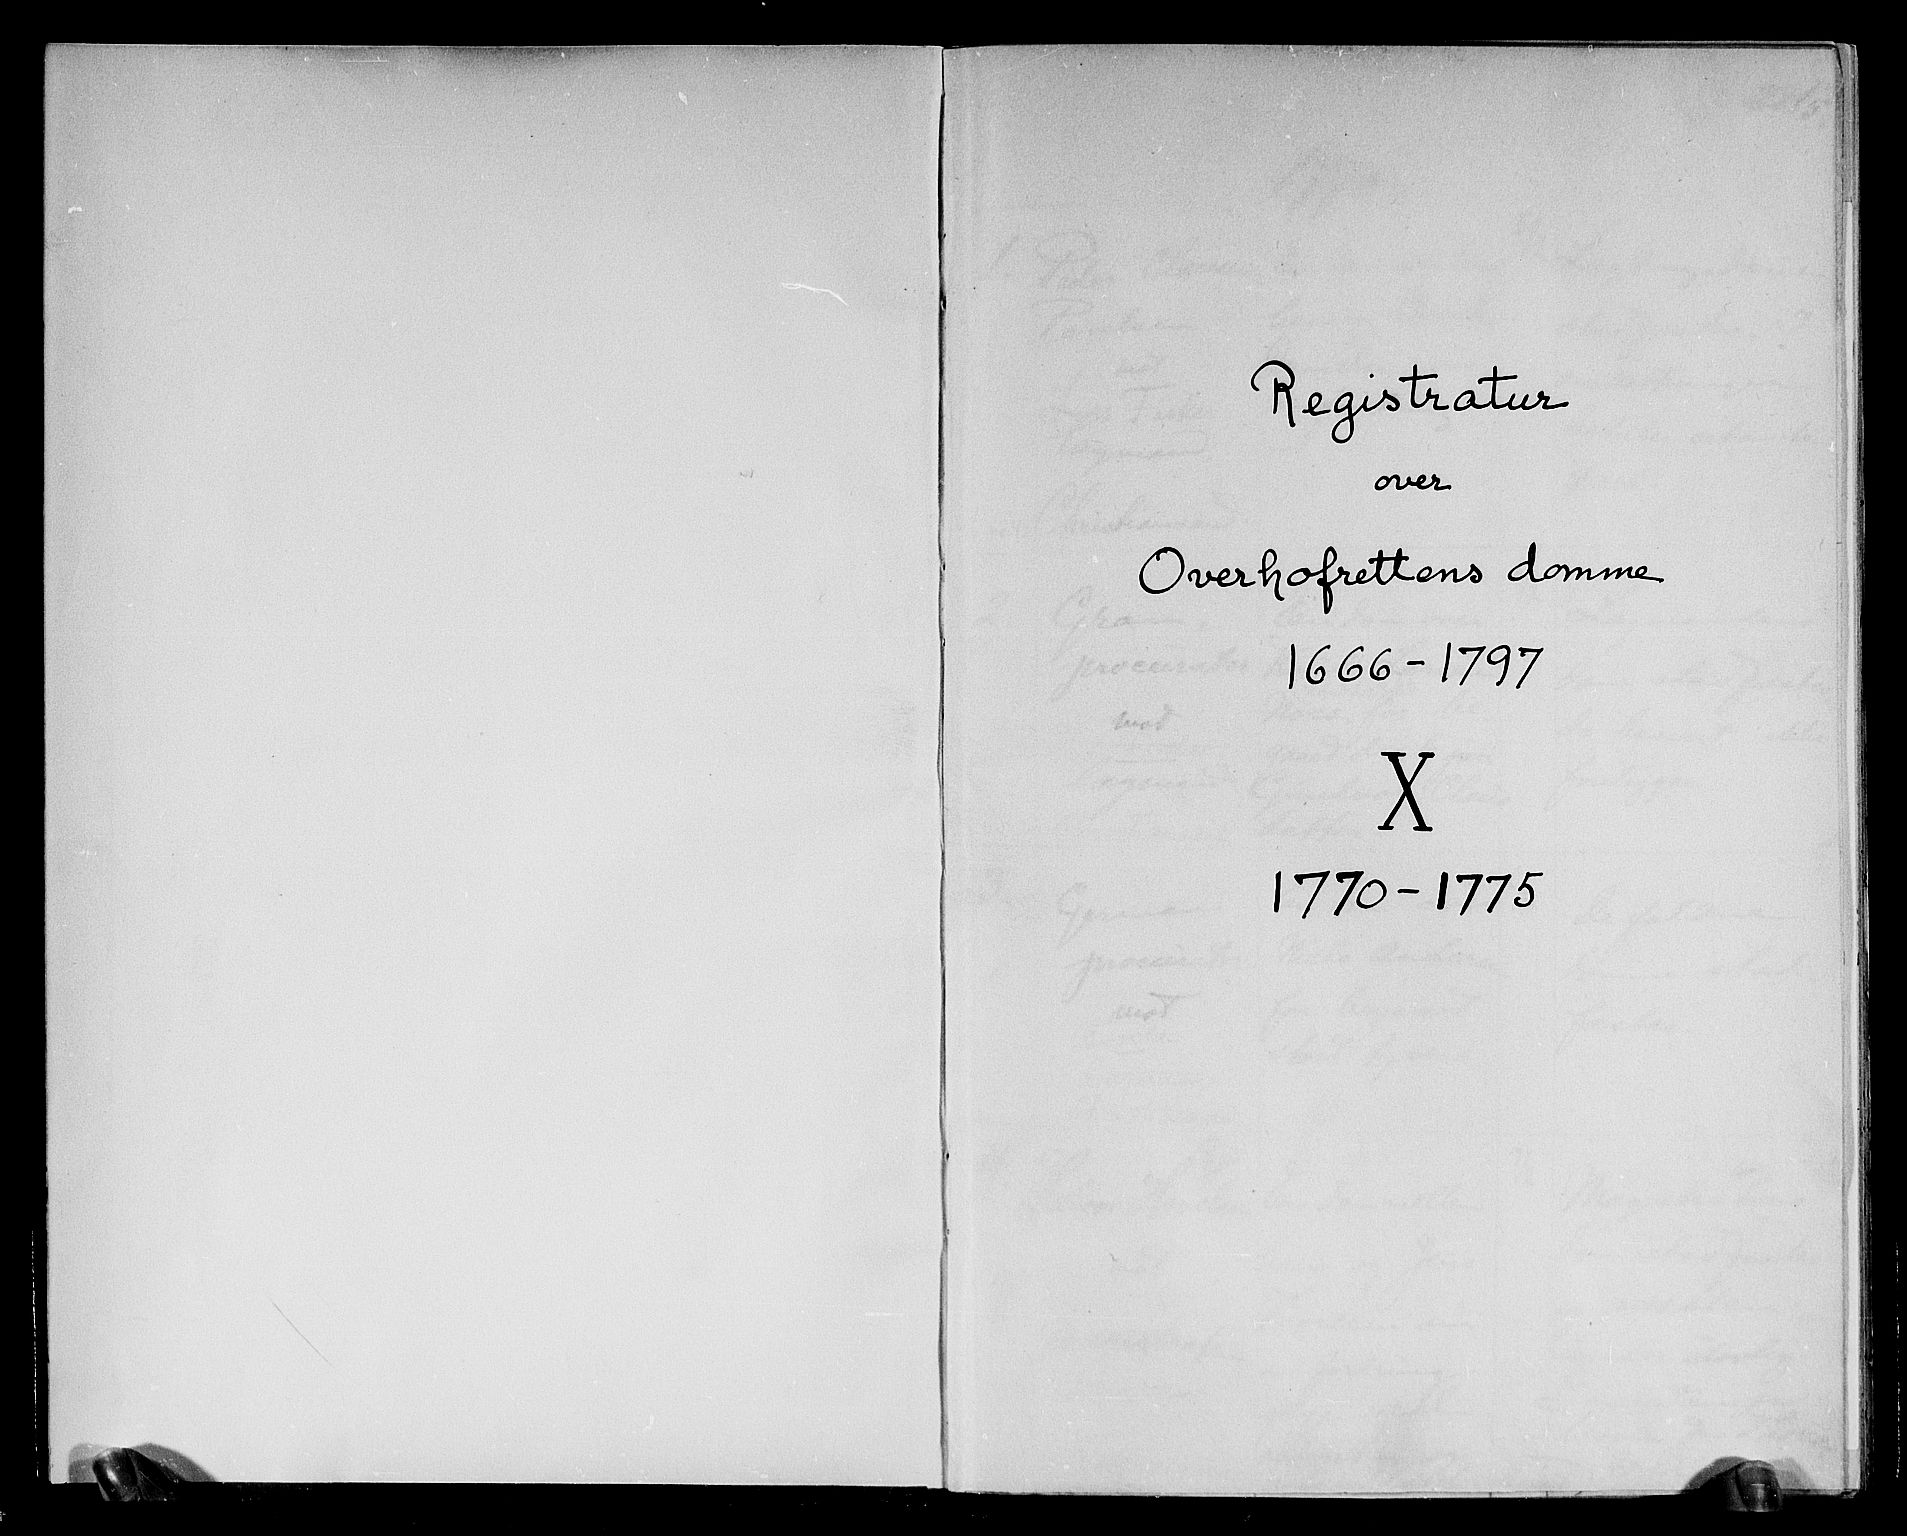 Registratur
over
Overhofrettens domme
1666-1797
X
1770-1775